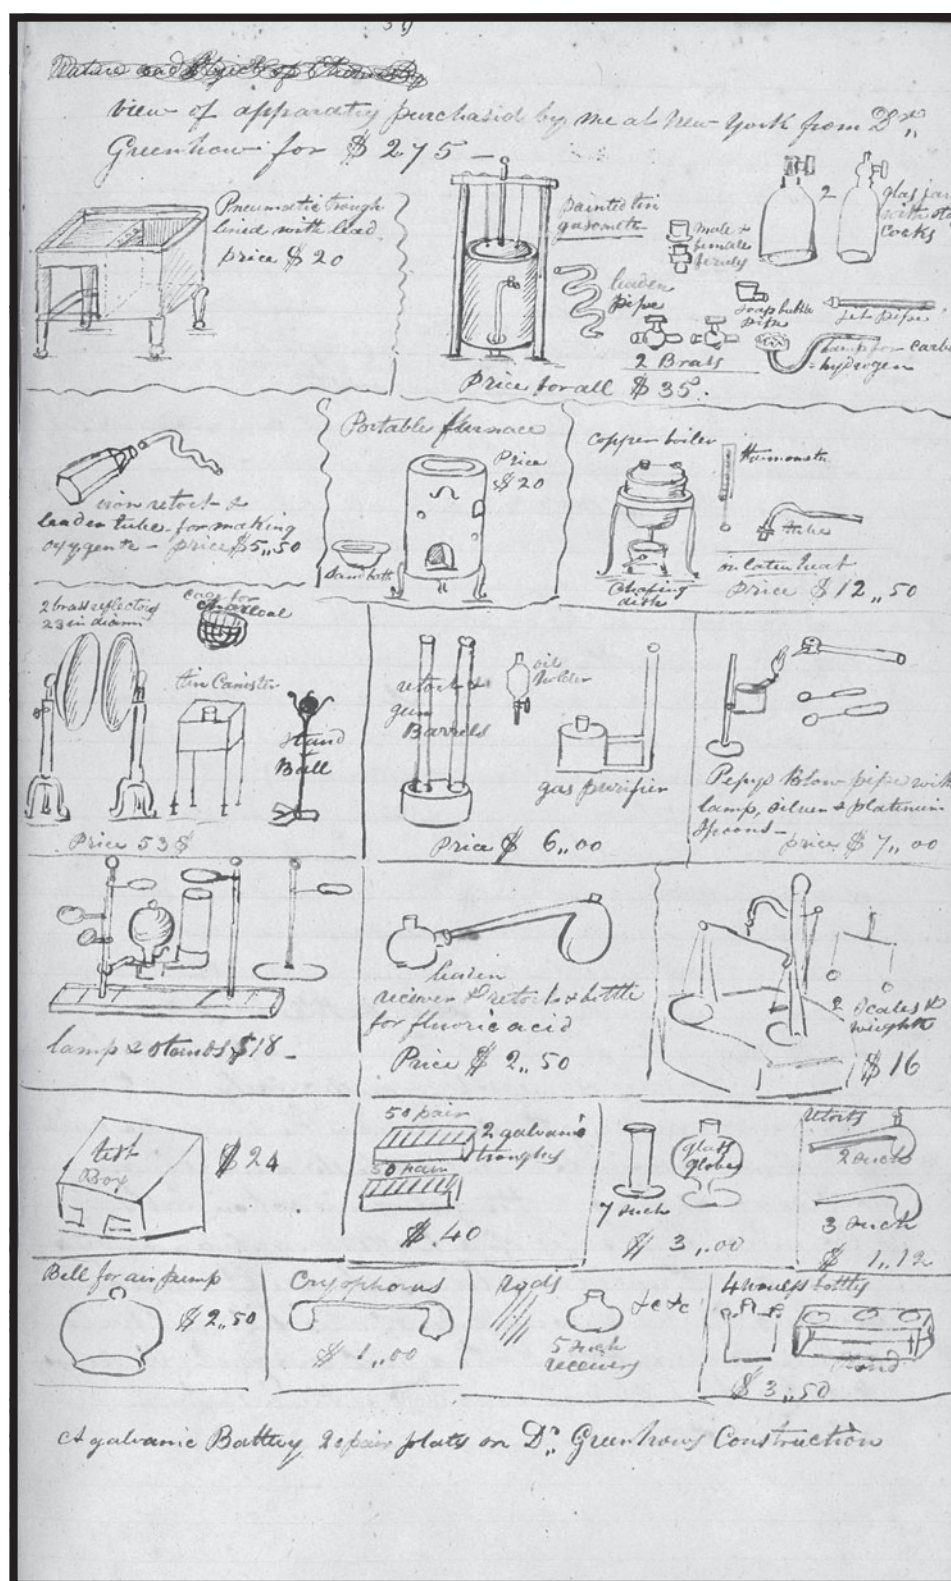 39
Nature and Object of Chemistry
view of apparatus purchased by me at New York from Dr.
Greenhow for $ 275 —
Pneumatic trough
lined with lead
price $ 20
painted tin
gasometer
leaden
pipe
male &
female
2
glass jars
with stop
cocks
soap bubble
pipe
jet pipe
2 Brass
lamp for carb
hydrogen
Price for all $ 35.
iron retort &
leaden tube for making
oxygen — price $5,,50
Portable furnace
Price
$ 20
Sand bath
copper boiler
thermometer
tube
on latent heat
Chafing
dish
Price $ 12,,50
2 brass reflectors
23 in diam
cage for
charcoal
tin Canister
stand
Ball
Price 53 $
retort &
gun
Barrels
oil
holder
gas purifier
Price $ 6,,00
Pepys Blow pipe with
lamp, silver & platinum
spoons —
price $ 7,,00
lamp & stands $18 —
leaden
reciever & retort & bottle
for fluoric acid
Price $ 2,,50
2 scales &
weights
$ 16
test
Box
$ 24
50 pair
2 galvanic
troughs
50 pair
$ .40
7 such
glass
globes
$ 3,,00
retorts
2 such
3 such
$ 1,,12
Bell for air pump
$ 2,,50
Cryophorus
$ 1,,00
rods
&c &c
5 such
recievers
4 bottles
$ 3,,50
A galvanic Battery 20 pair plats on Dr. Greenhows Construction